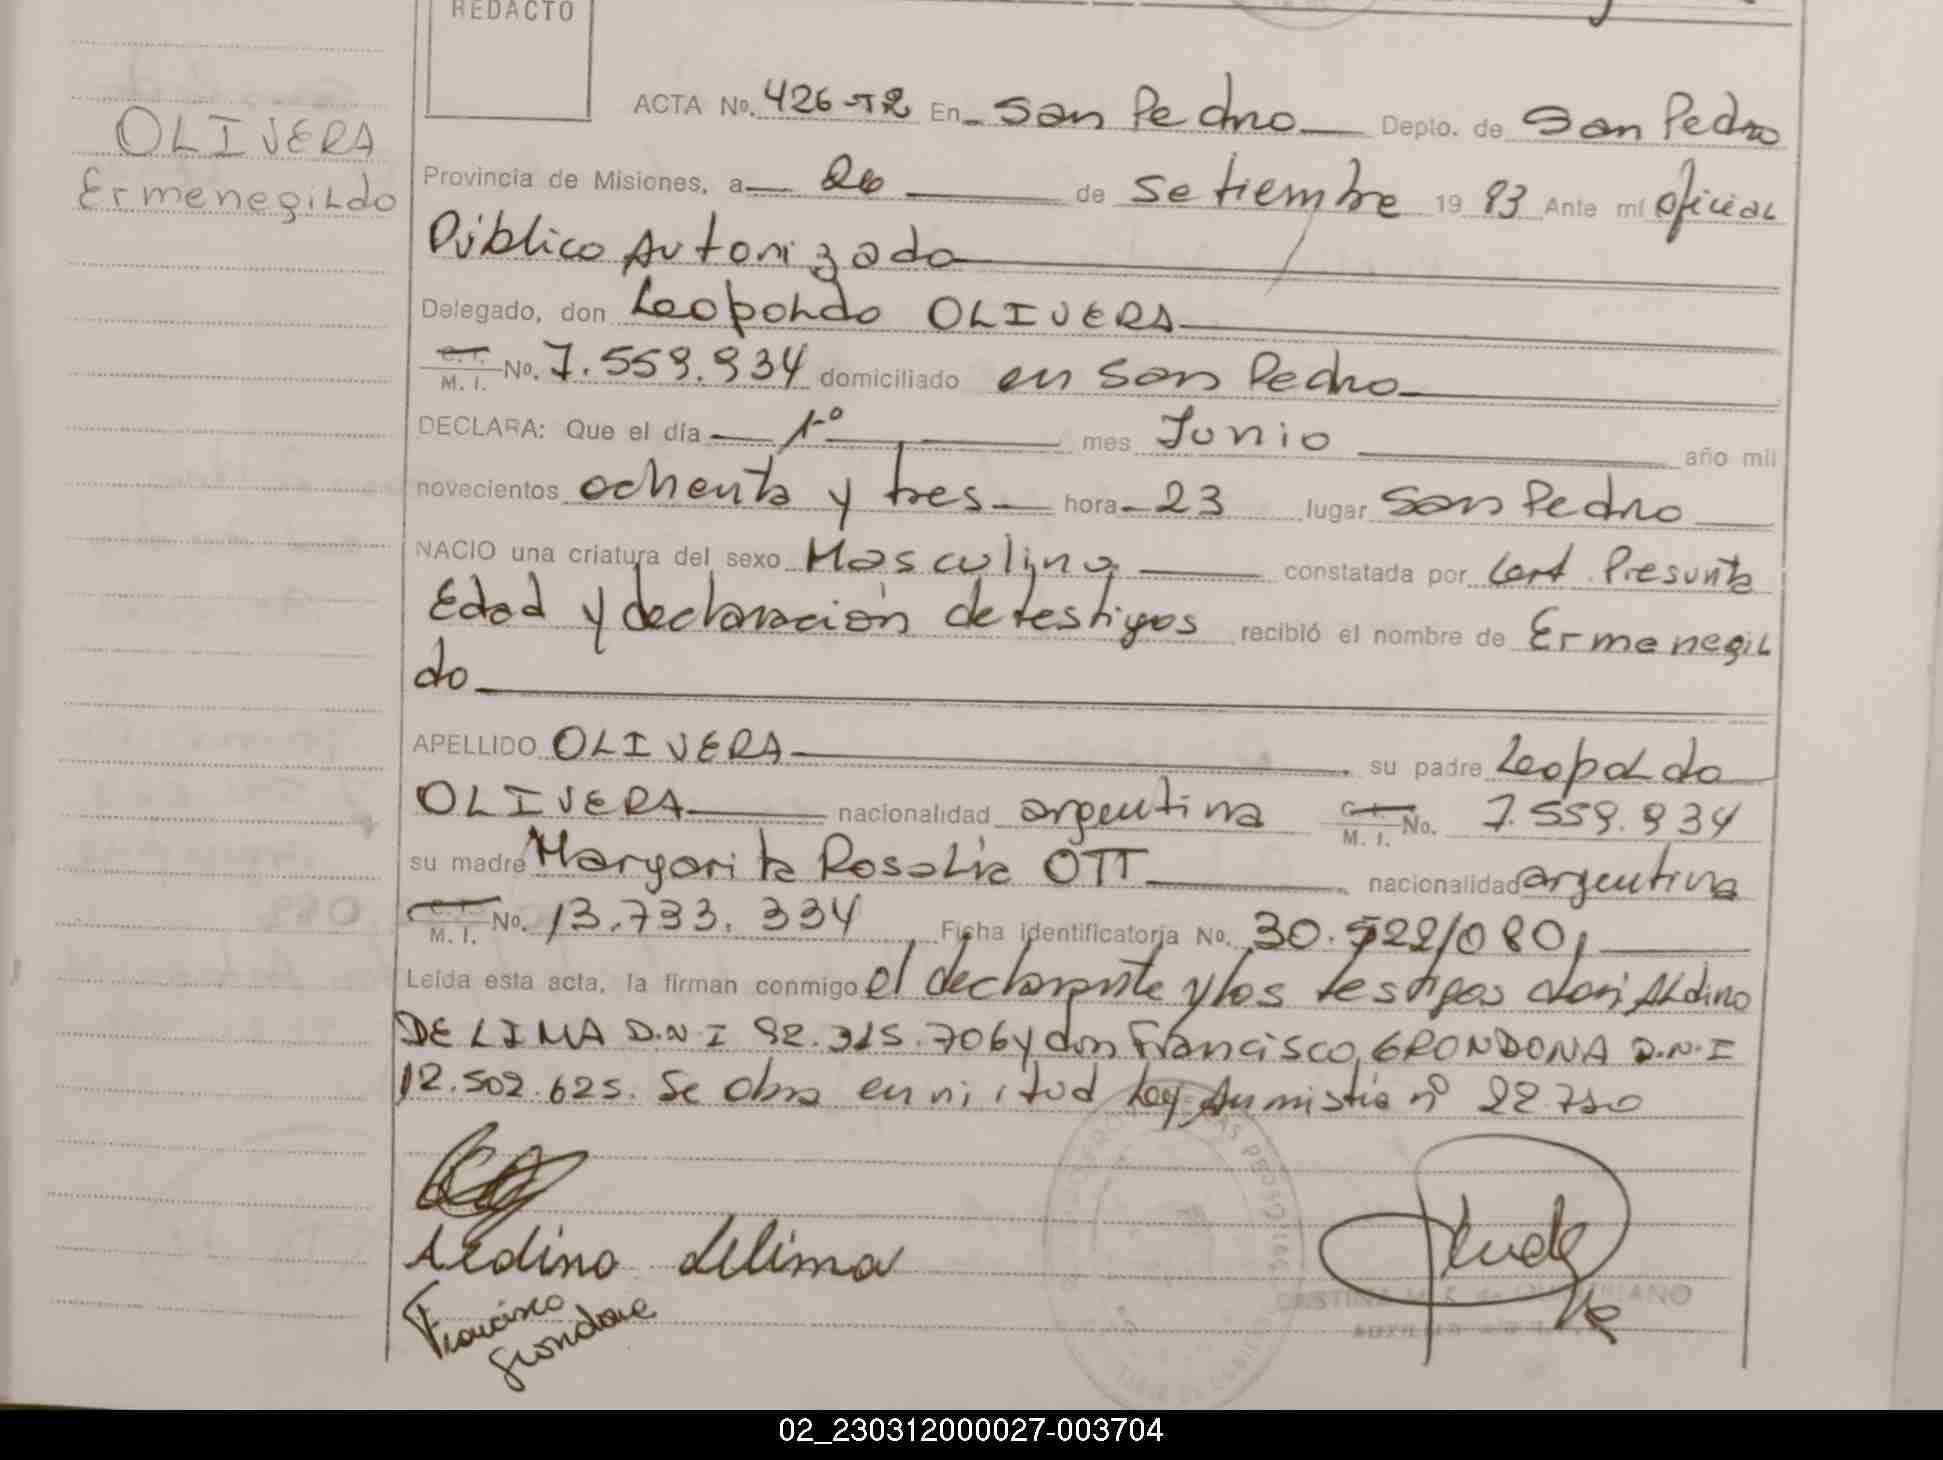 REDACTO
OLIVERA
Ermenegildo
ACTA No. 426 T2 En San Pedro Depto. de San Pedro
Provincia de Misiones, a 20 de Setiembre 19 83 Ante mí oficial
Público Autorizado
Delegado, don Leopoldo OLIVERA
C. I. M. I. No. 7.559.934 domiciliado en San Pedro
DECLARA: Que el día 1º mes Junio año mil
novecientos ochenta y tres hora 23 lugar San Pedro
NACIO una criatura del sexo Masculino constatada por Cert. Presunta
Edad y declaración de testigos recibió el nombre de Ermenegil
do
APELLIDO OLIVERA su padre Leopoldo
OLIVERA nacionalidad argentina C. I. M. I. No. 7.559.934
su madre Margarita Rosalia OTT nacionalidad argentina
C. I. M. I. No. 13.733.334 Ficha identificatoria No. 30.522/080,
Leída esta acta, la firman conmigo el declarante y los testigos don Aldino
DE LIMA D.N.I 92.315.706 y don Francisco GRONDONA D.N.I
12.502.625. Se obra en virtud Ley Amnistia nº
Aldino delima
Francisco
grondona
02_230312000027-003704